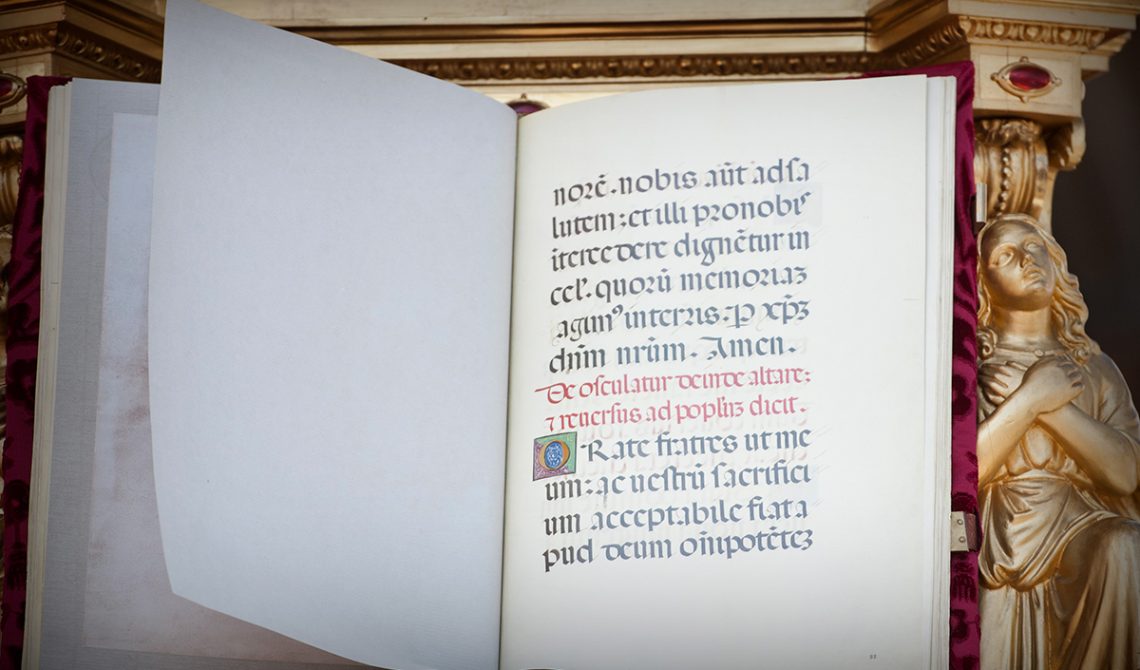 norē. nobis aūt ad sa
lutem: et illi pro nobis
ītercedere dignētur in
cel'. quorū memoriaʒ
agimꝰ in terris. P xp̄ʒ
dn̄m nr̄um. Amen.
De osculatur deinde altare:
⁊ reuersus ad popl'uʒ dicit.
ORate fratres ut me
um: ac uestrū sacrifici
um acceptabile fiat a
pud deum om̄ipotēteʒ